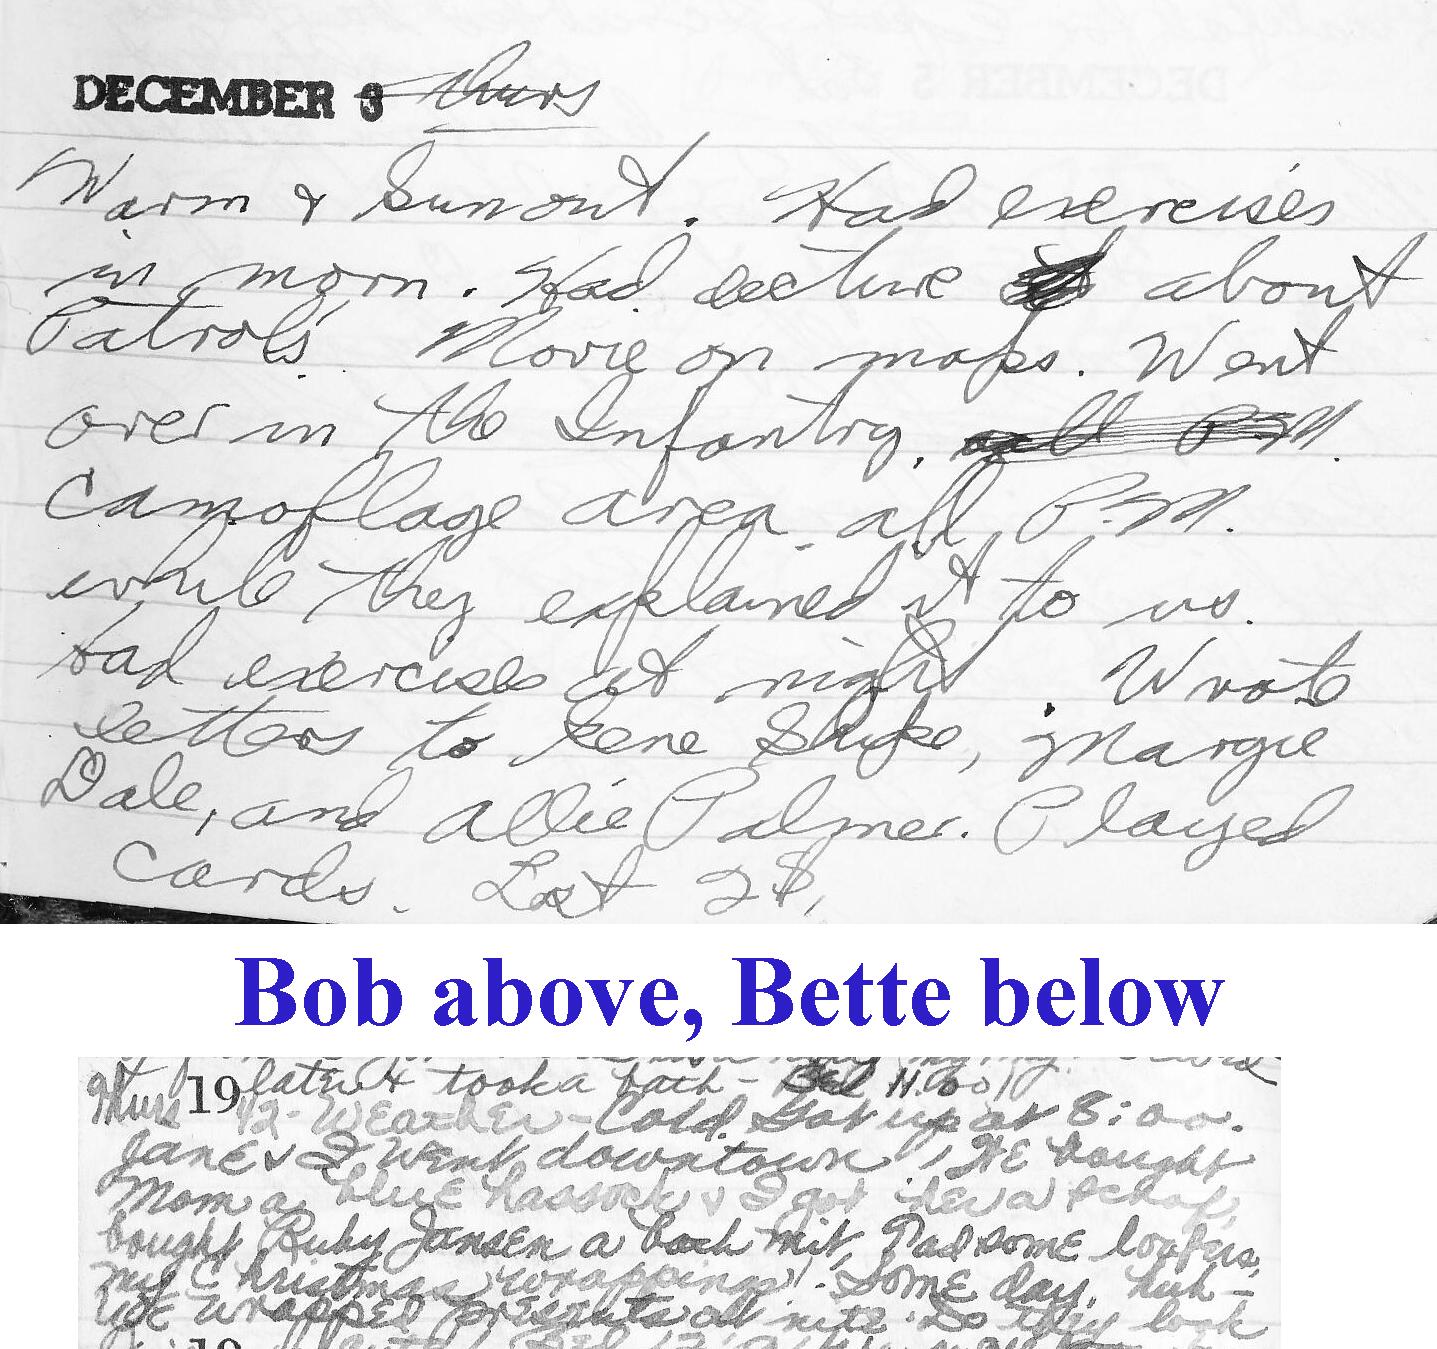 DECEMBER 3 Thurs
Warm & Sun out. Had exercises
in morn. Had lecture about
Patrols. Movie on maps. Went
over in the Infantry, all P.M.
Camoflage area all P.M.
while they explained it to us.
Had exercises at night. Wrote
letters to Gene Slyke, Margie
Dale, and Allie Palmer. Played
Cards. Lost 2$,
Bob above, Bette below
later & took a bath - Bed 11:00
Thurs 19 42 - Weather - Cold. Got up at 8:00.
Jane & I went downtown, WE bought
Mom a blue hassock & I got her a
bought Ruby Jansen a bath mit, Dad some loafers,
my Christmas wrappings! Some day, huh -
WE wrapped presents all nite. Do they look
19